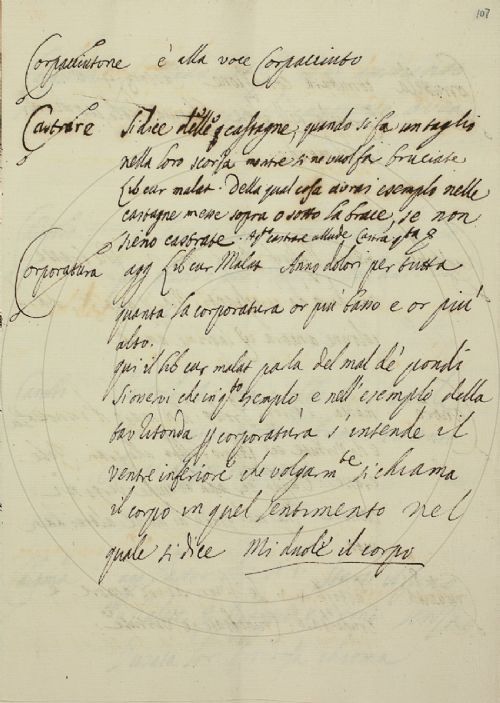 107
Corpacciutone è alla voce Corpacciuto
Castrare Si dice delle castagne, quando si fa un taglio
nella loro scorza mentre si ne vuol fa bruciate
Lib cur malat. Della qual cosa avrai esemplo nelle
castagne messe sopra o sotto la brace, se non
sieno castrate. castrare allude
Corporatura agg Lib cur Malat Anno dolori per tutta
quanta la corporatura or più basso e or più
alto.
qui il lib cur malat parla del mal de' pondi
Si osservi che in q.to esemplo e nell'esemplo della
tav Ritonda corporatura s'intende il
ventre inferiore che volgarm.te si chiama
il corpo in quel sentimento nel
quale si dice Mi duole il corpo